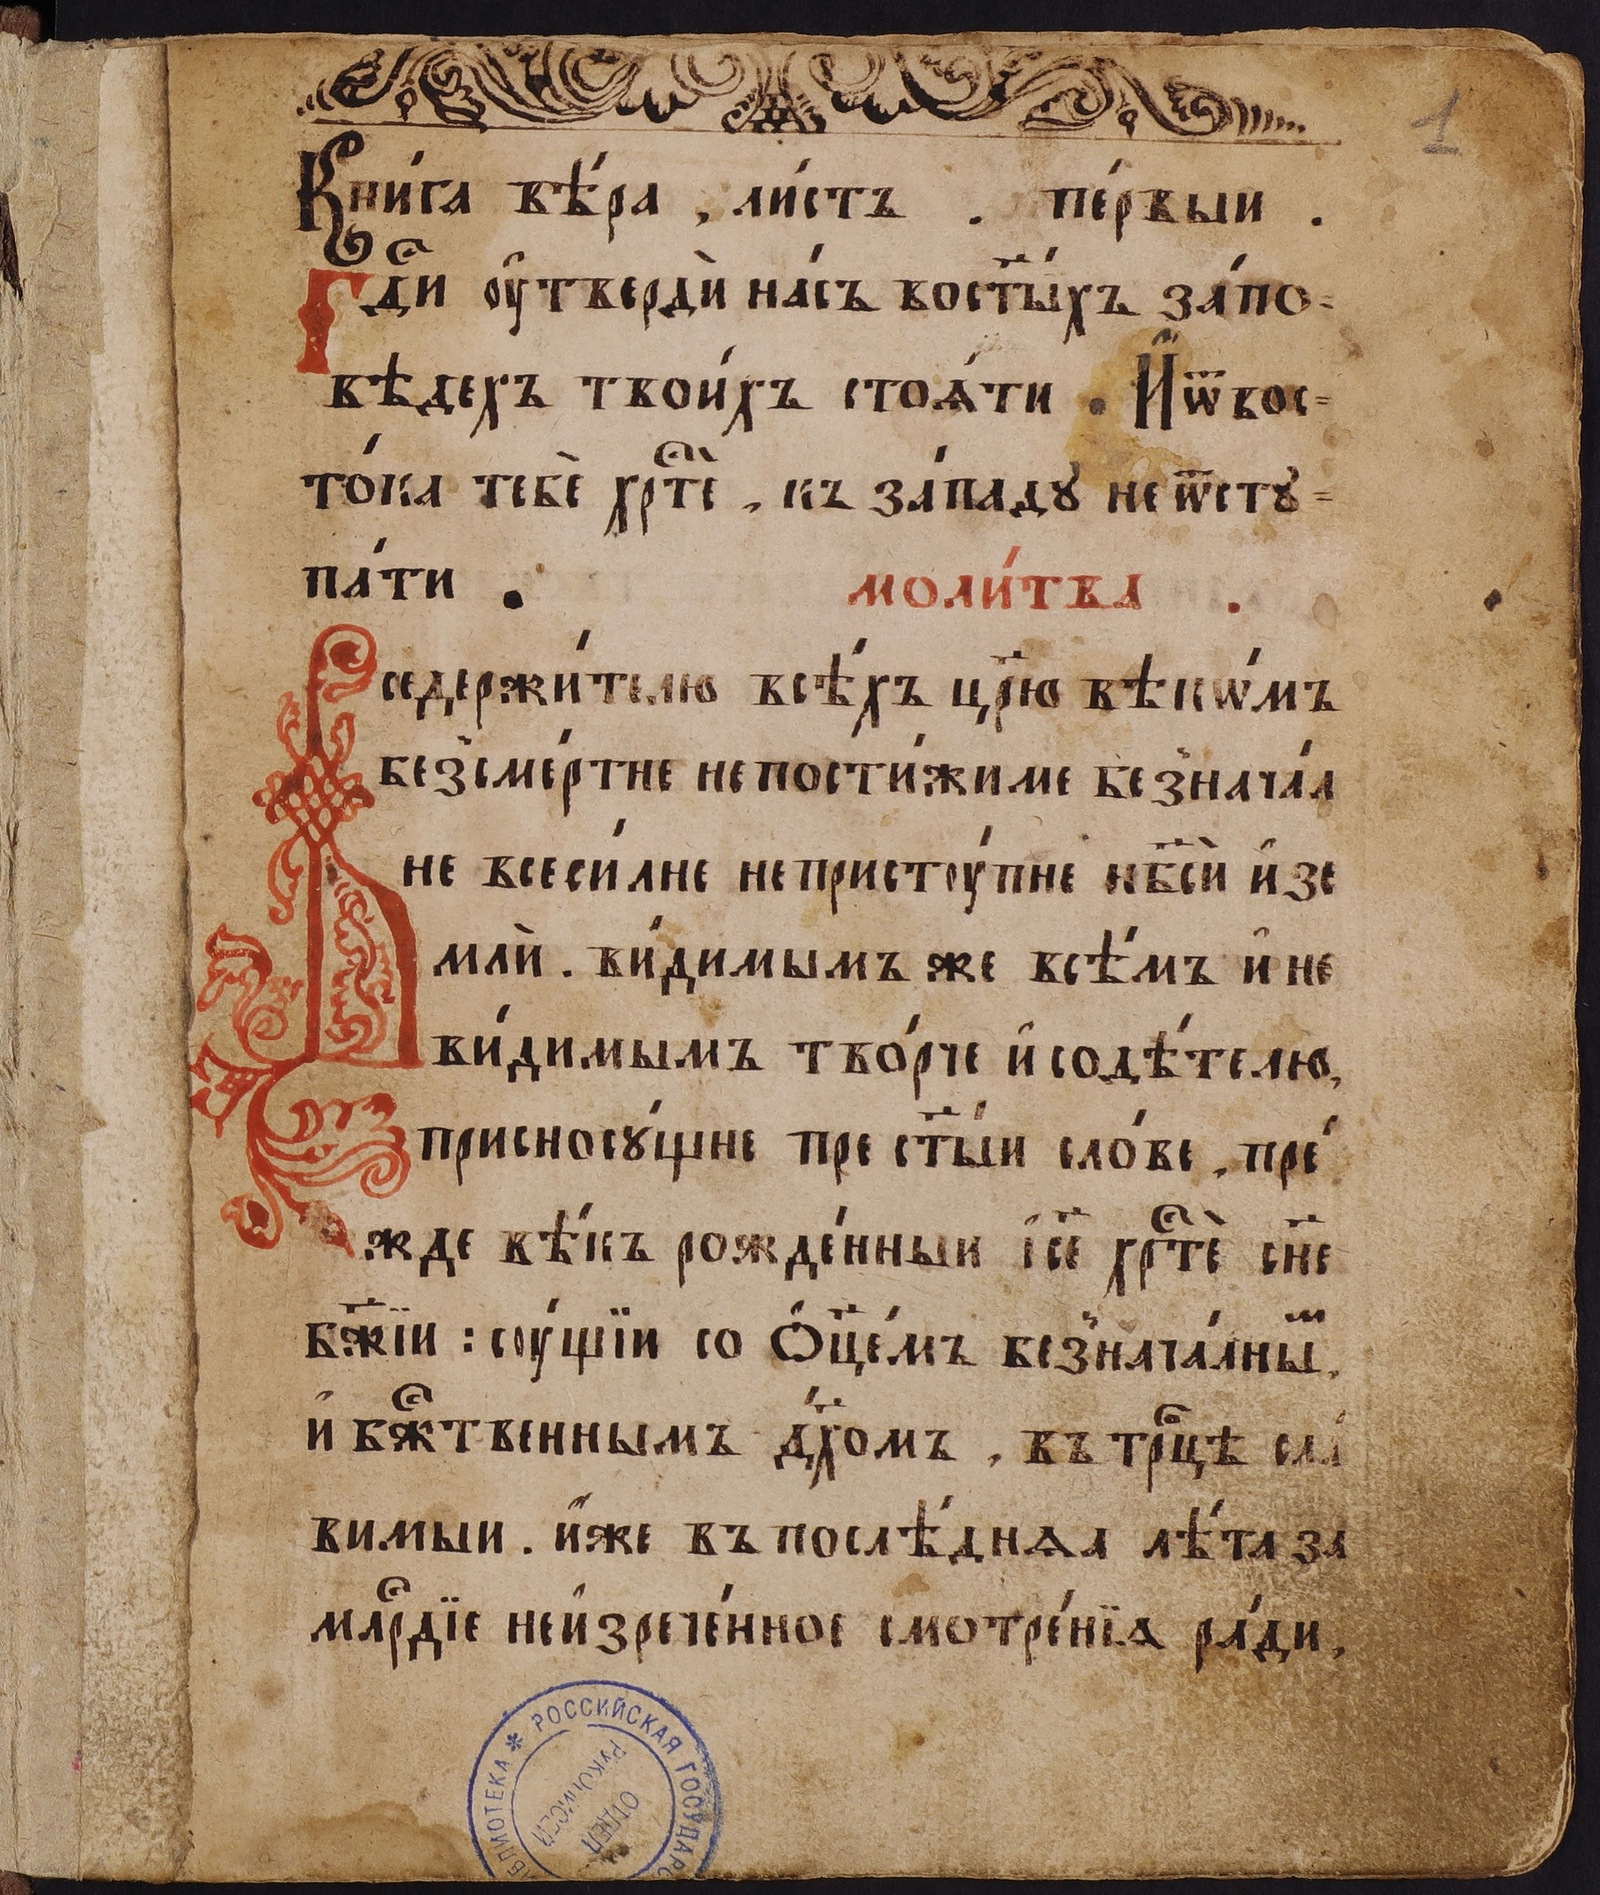 1
Кни́га вѣ́ра , ли́стъ . пе́рвыи .
Гдⷭ҇и ᲂу҆твердѝ на́съ вост҃ы́хъ за́по=
вѣдехъ твои́хъ стоѧ́ти . И҆ ѿвос=
то́ка тебѐ хрⷭ҇тѐ , къ за́падꙋ не ѿстꙋ=
па́ти . моли́тва .
Вседержи́телю всѣ́хъ цр҃ю вѣкѡ́мъ
безсме́ртне непости́жиме безнача́л
не всеси́лне непристᲂу́пне нб҃сѝ и҆ зе
млѝ . ви́димымъ же всѣ́мъ и҆ не
ви́димымъ тво́рче и҆ содѣ́телю,
присносꙋ́щне прест҃ы́и сло́ве , пре́
жде вѣ́къ рожде́нныи і҆с҃е хрⷭ҇тѐ сн҃е
бж҃їи : сᲂу́щїи со Ѻ҆ц҃е́мъ безнача́лныⷨ,
и҆ бжⷭ҇твеннымъ дх҃омъ , въ трⷪ҇цѣ сла́
вимыи . и҆́же въ послѣ́днѧѧ лѣ́та за
млⷭ҇рдїе неи҆зрече́нное смотре́нїѧ ра́ди,
РОССИЙСКАЯ ГОСУДАРС
БЛИОТЕКА *
ОТДЕЛ
РУКОПИСЕЙ